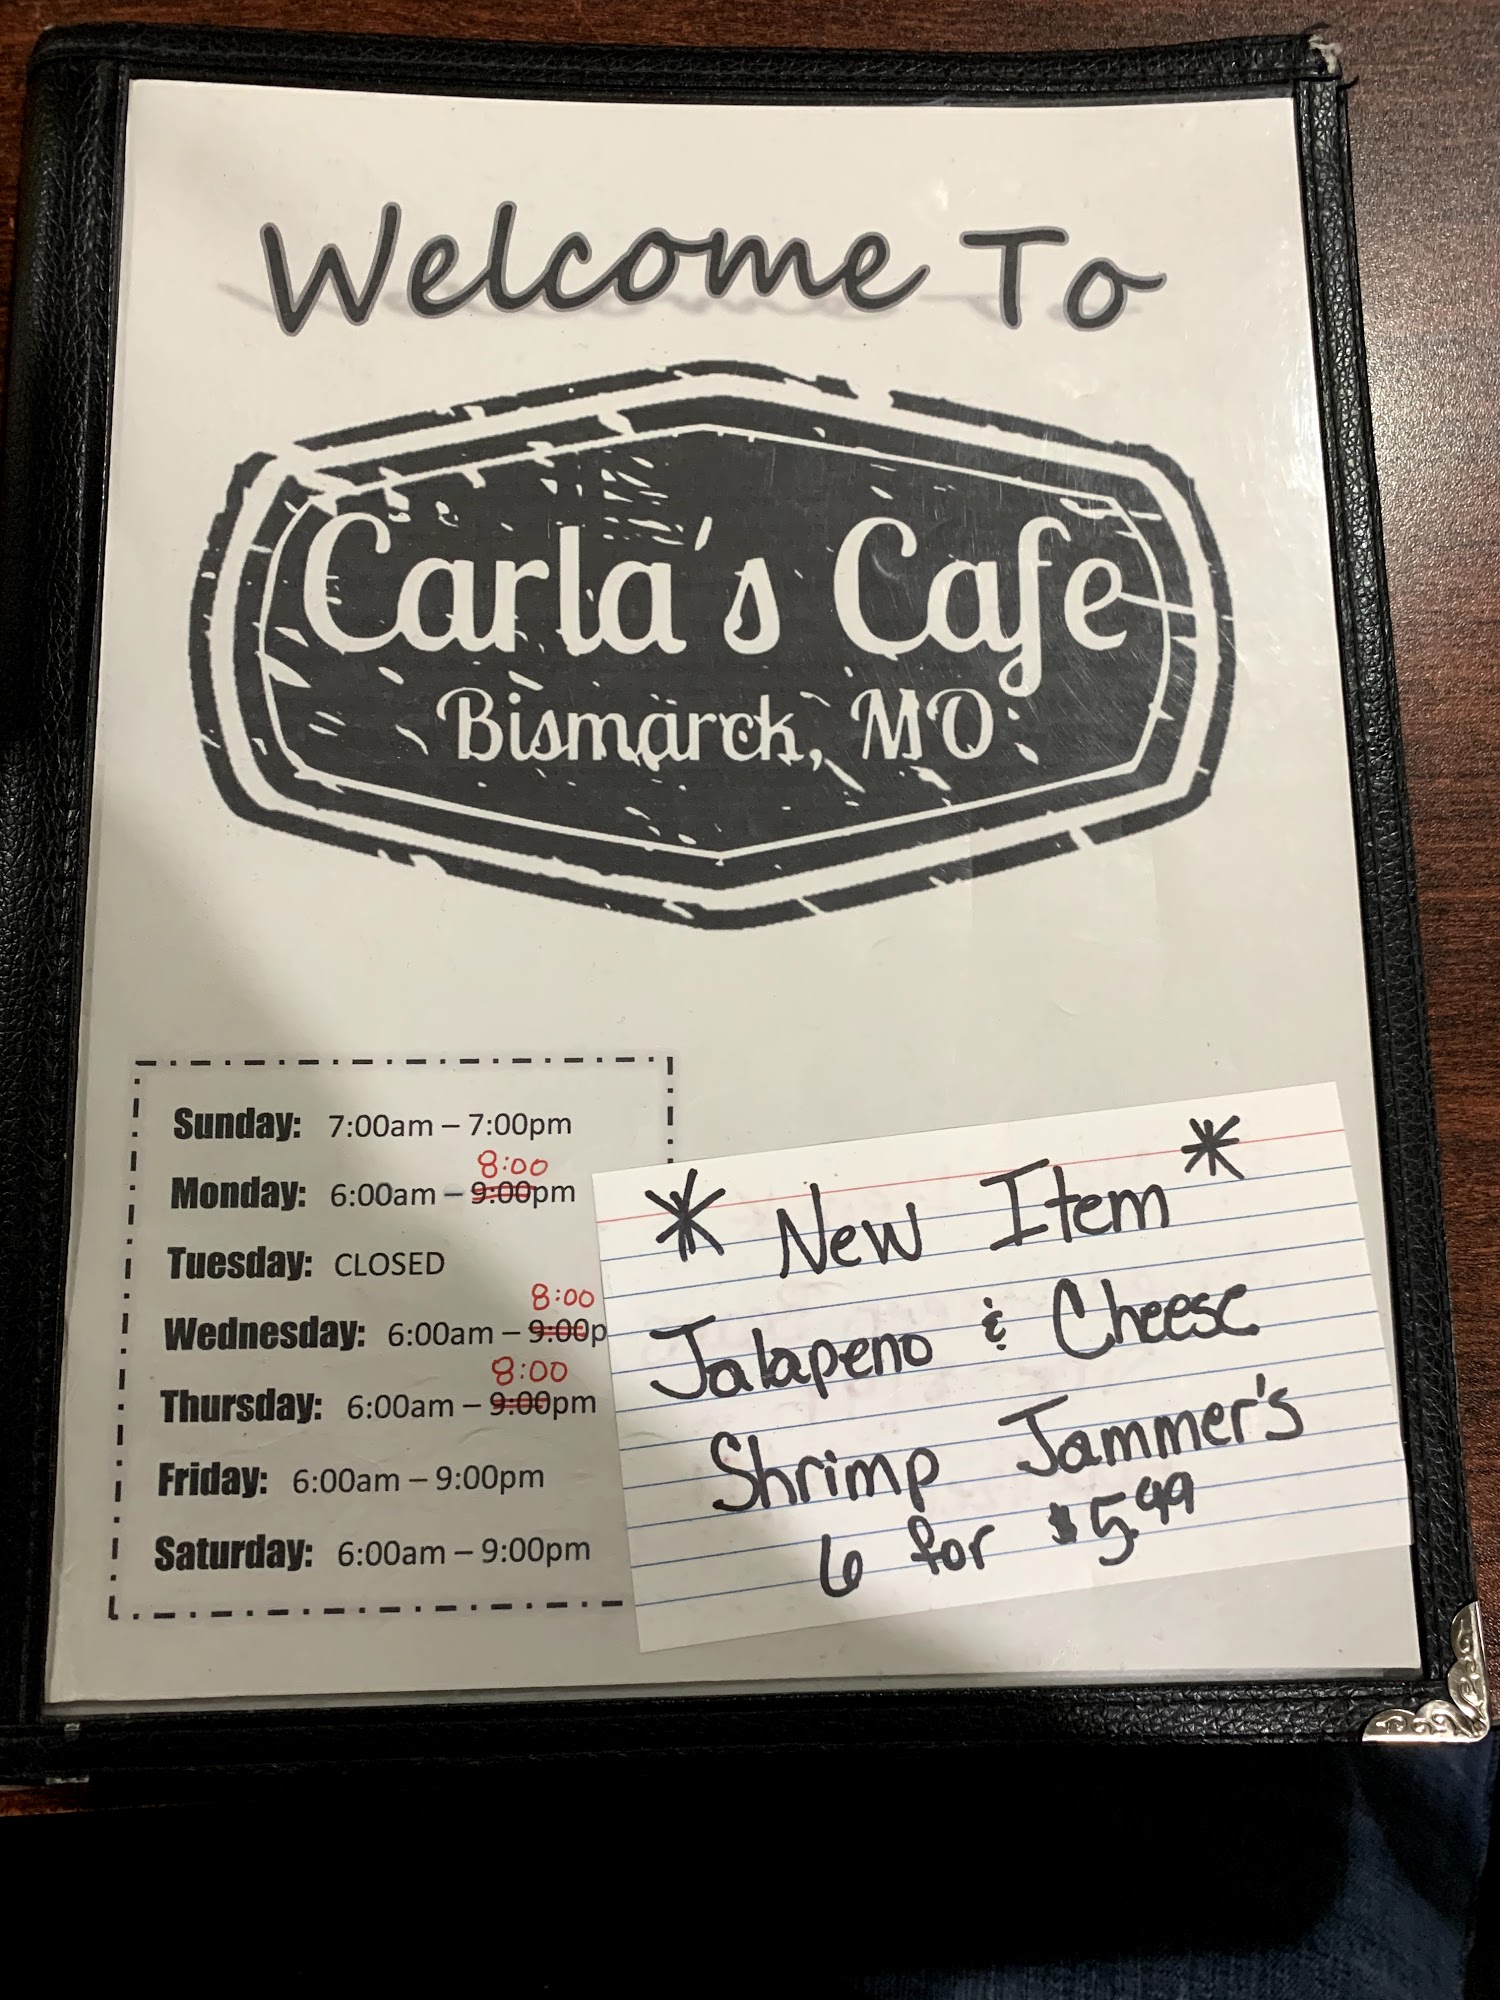 Welcome To
Carla's Cafe
Bismarck, MO
Sunday: 7:00am – 7:00pm
8:00
Monday: 6:00am – 9:00pm
Tuesday: CLOSED
8:00
Wednesday: 6:00am – 9:00p
8:00
Thursday: 6:00am – 9:00pm
Friday: 6:00am – 9:00pm
Saturday: 6:00am – 9:00pm
* New Item *
Jalapeno & Cheese
Shrimp Jammer's
6 for $5.99